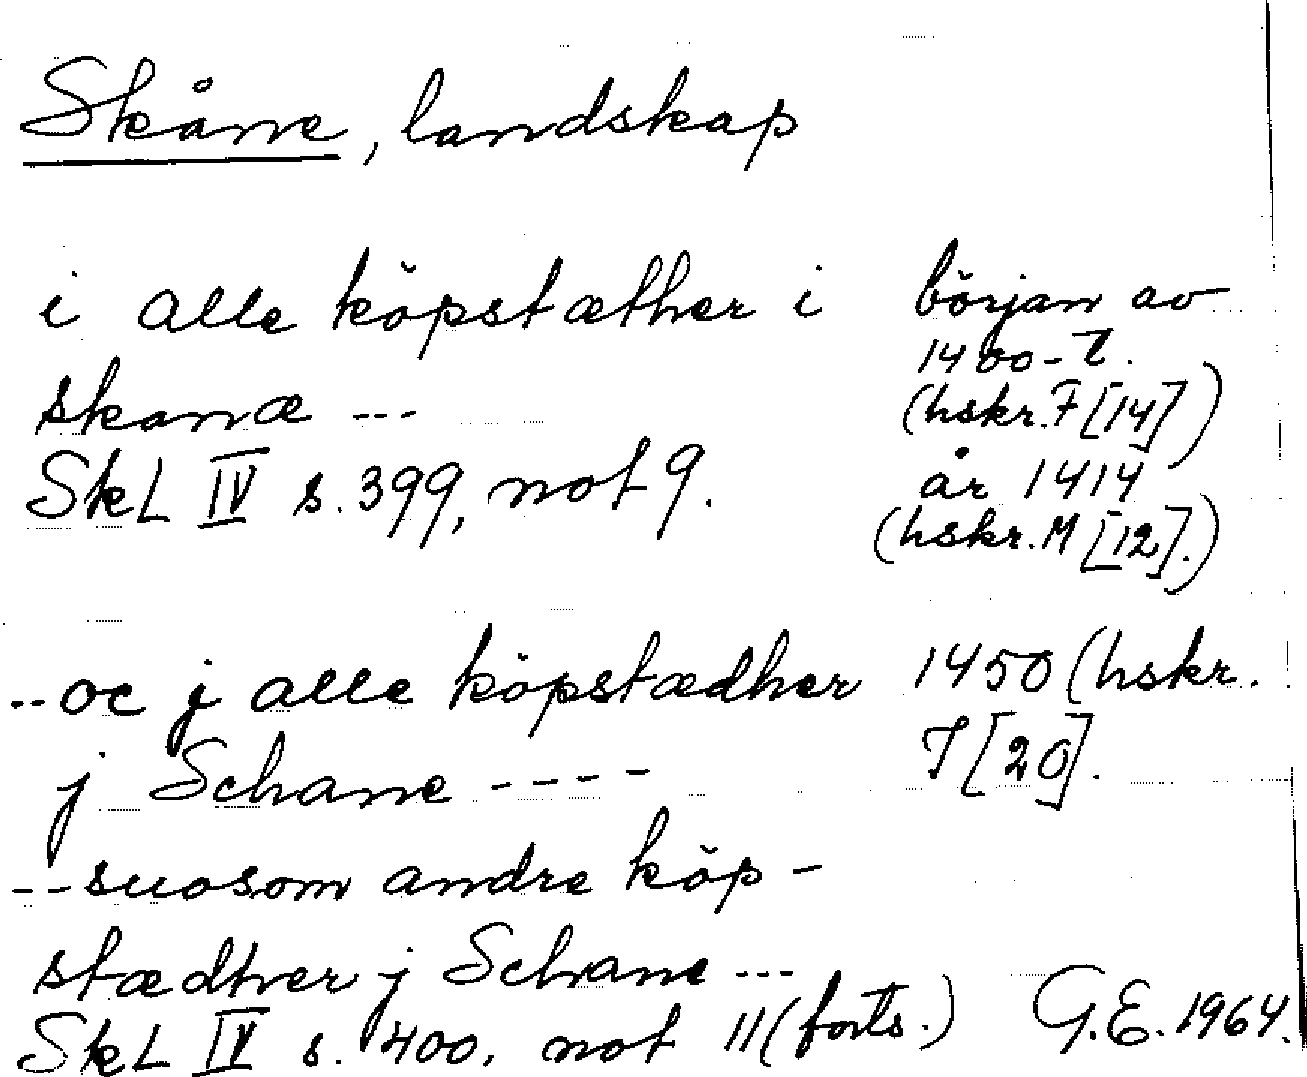 Skåne, landskap
i alle köpstæther i
skanæ ---
SkL IV s. 399, not 9.
början av
1400-t.
(hskr. F [14])
år 1414
(hskr. M [12].)
--oc j alle köpstædher
j Schane ----
1450 (hskr.
I [20].
--suosom andre köp-
stædher j Schane ---
SkL IV s. 400, not 11 (forts.)
G.E. 1964.